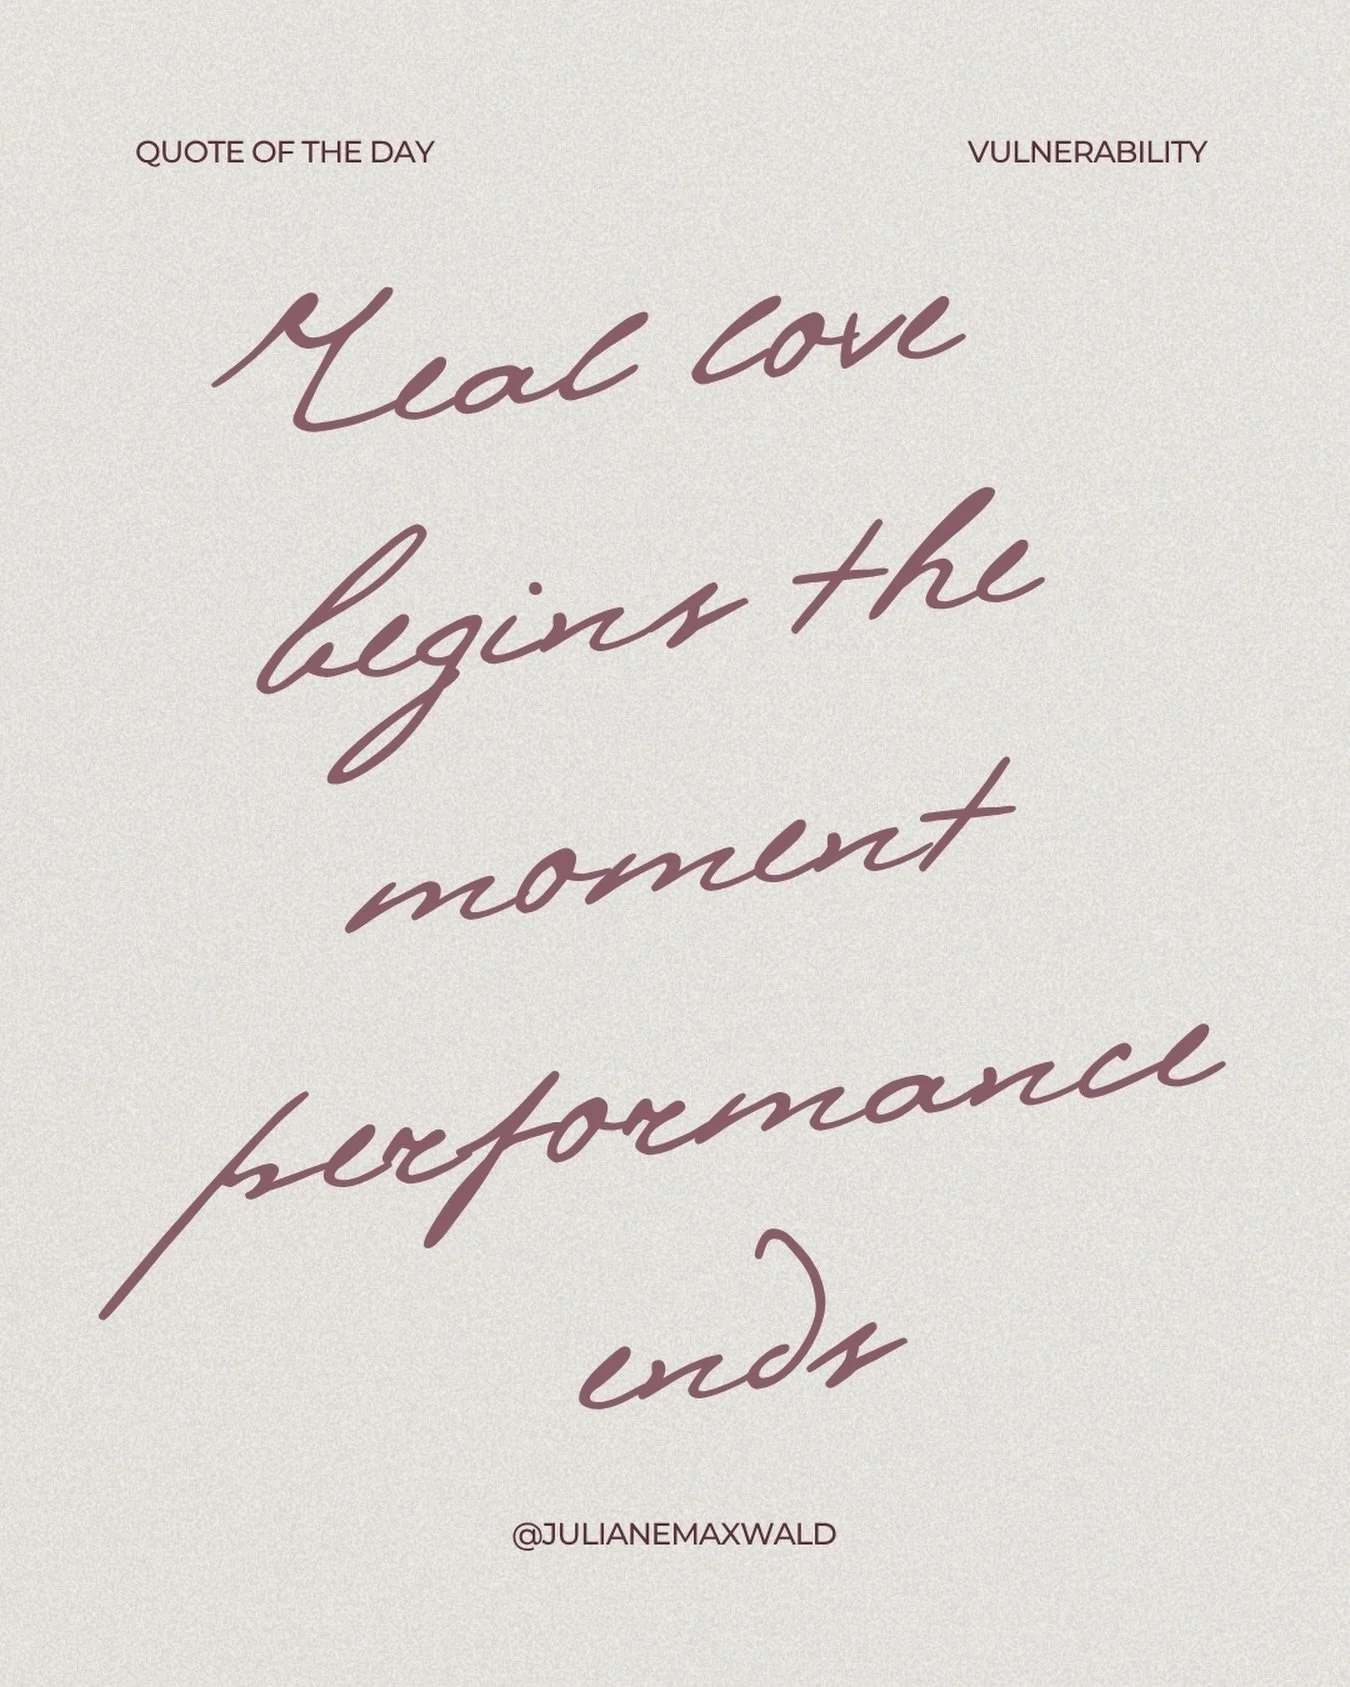 QUOTE OF THE DAY
VULNERABILITY
Real love
begins the
moment
performance
ends
@JULIANEMAXWALD